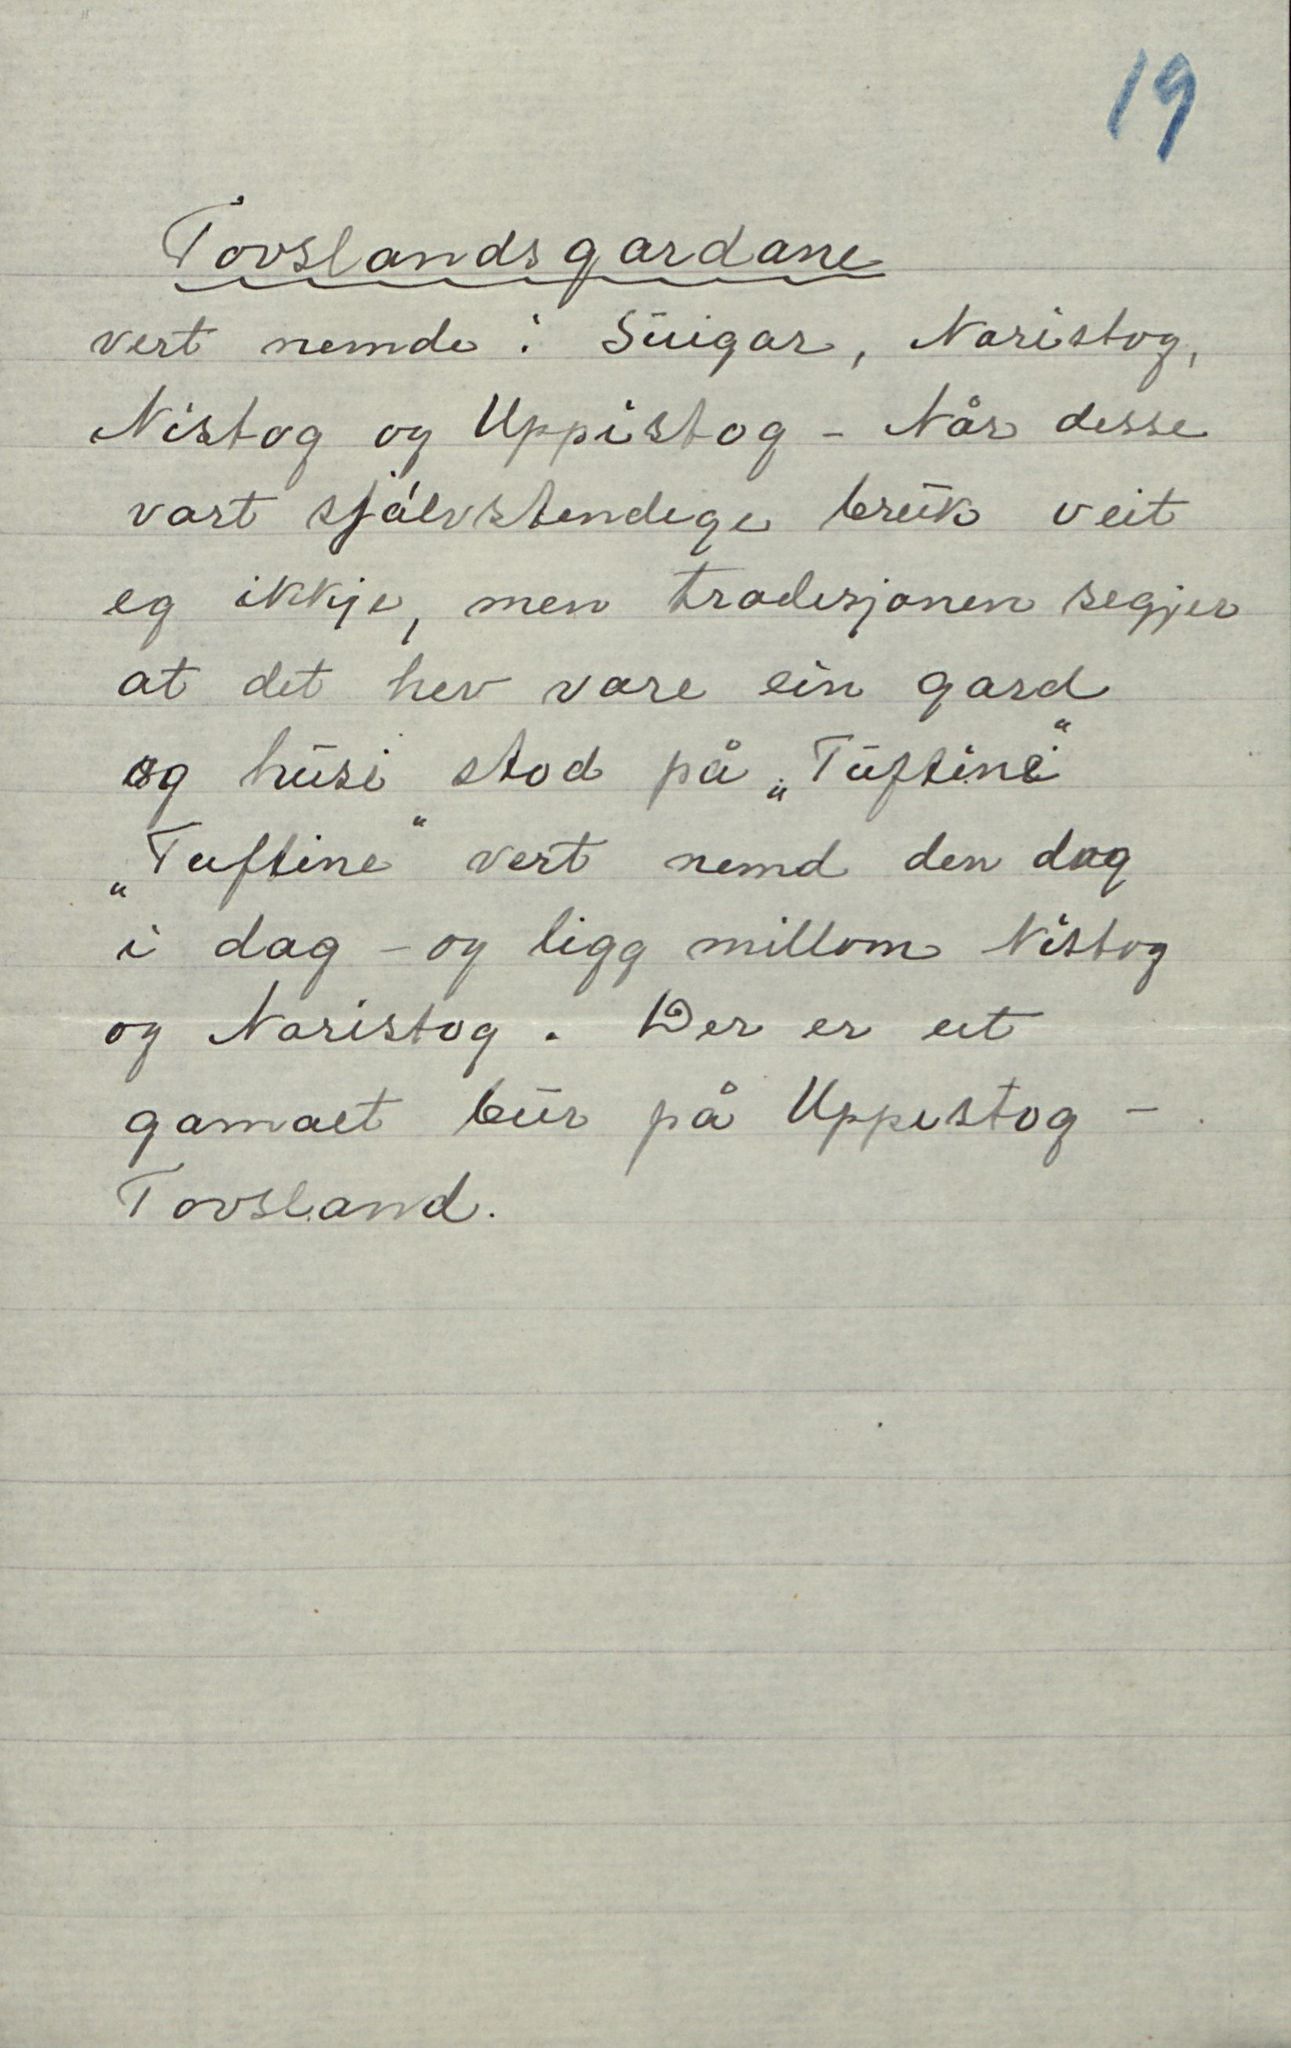 19
Tovslandsgardane
vert nemde i Suigar, Naristog,
Nistog og Uppistog - Når desse
vart sjálvstendige bruk veit
eg ikkje, men tradisjonen segjer
at det hev vare ein gard
og husi stod på „Tuftine“
„Tuftine“ vert nemd den dag
i dag - og ligg millom Nistog
og Naristog. Der er eit
gamalt bur på Uppistog -
Tovsland.